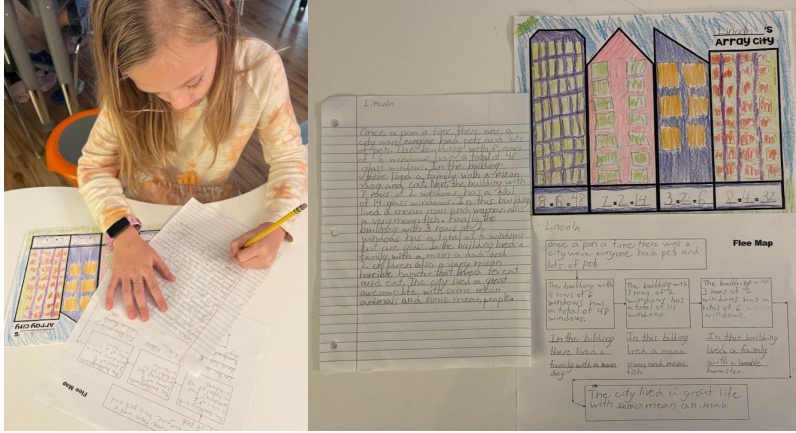 Lincoln
Once a pon a time there was a
city were everyone had pets and lots
of pets. The building with 8 rows
of 6 windows has a total of 48
glass windows. In the building
there lived a family with a mean
dog and cat. Next, the building with
7 rows of 2 windows has a total
of 14 glass windows. In this building
lived a mean man and woman also
a very mean fish. Finally, the
building with 3 rows of 2
windows has a total of 6 windows
that are glass. In the building lived a
family with a mom a dad and
children also a very mean
horrible hamster that loved to eat
and eat. The city lived a great
awesome life with some mean
animals and some mean people.
's
ARRAY CITY
8 . 6 . 48
7 . 2 . 14
3 . 2 . 6
8 . 4 . 32
Lincoln
Flee Map
Once a pon a time there was a
city were everyone had pets and
lots of pets.
The building with
8 rows of 6
windows has
a total of 48
windows.
The building with
7 rows of 2
windows has
a total of 14
windows.
The building with
3 rows of 2
windows has a
total of 6
windows.
In the bilding
there lived a
family with a mean
dog.
In this bilding
lived a mean
man and mean
fish.
In this building
lived a family
with a horrible
hamster.
The city lived a great life
with some mean animals.
ARRAY CITY
Flee Map